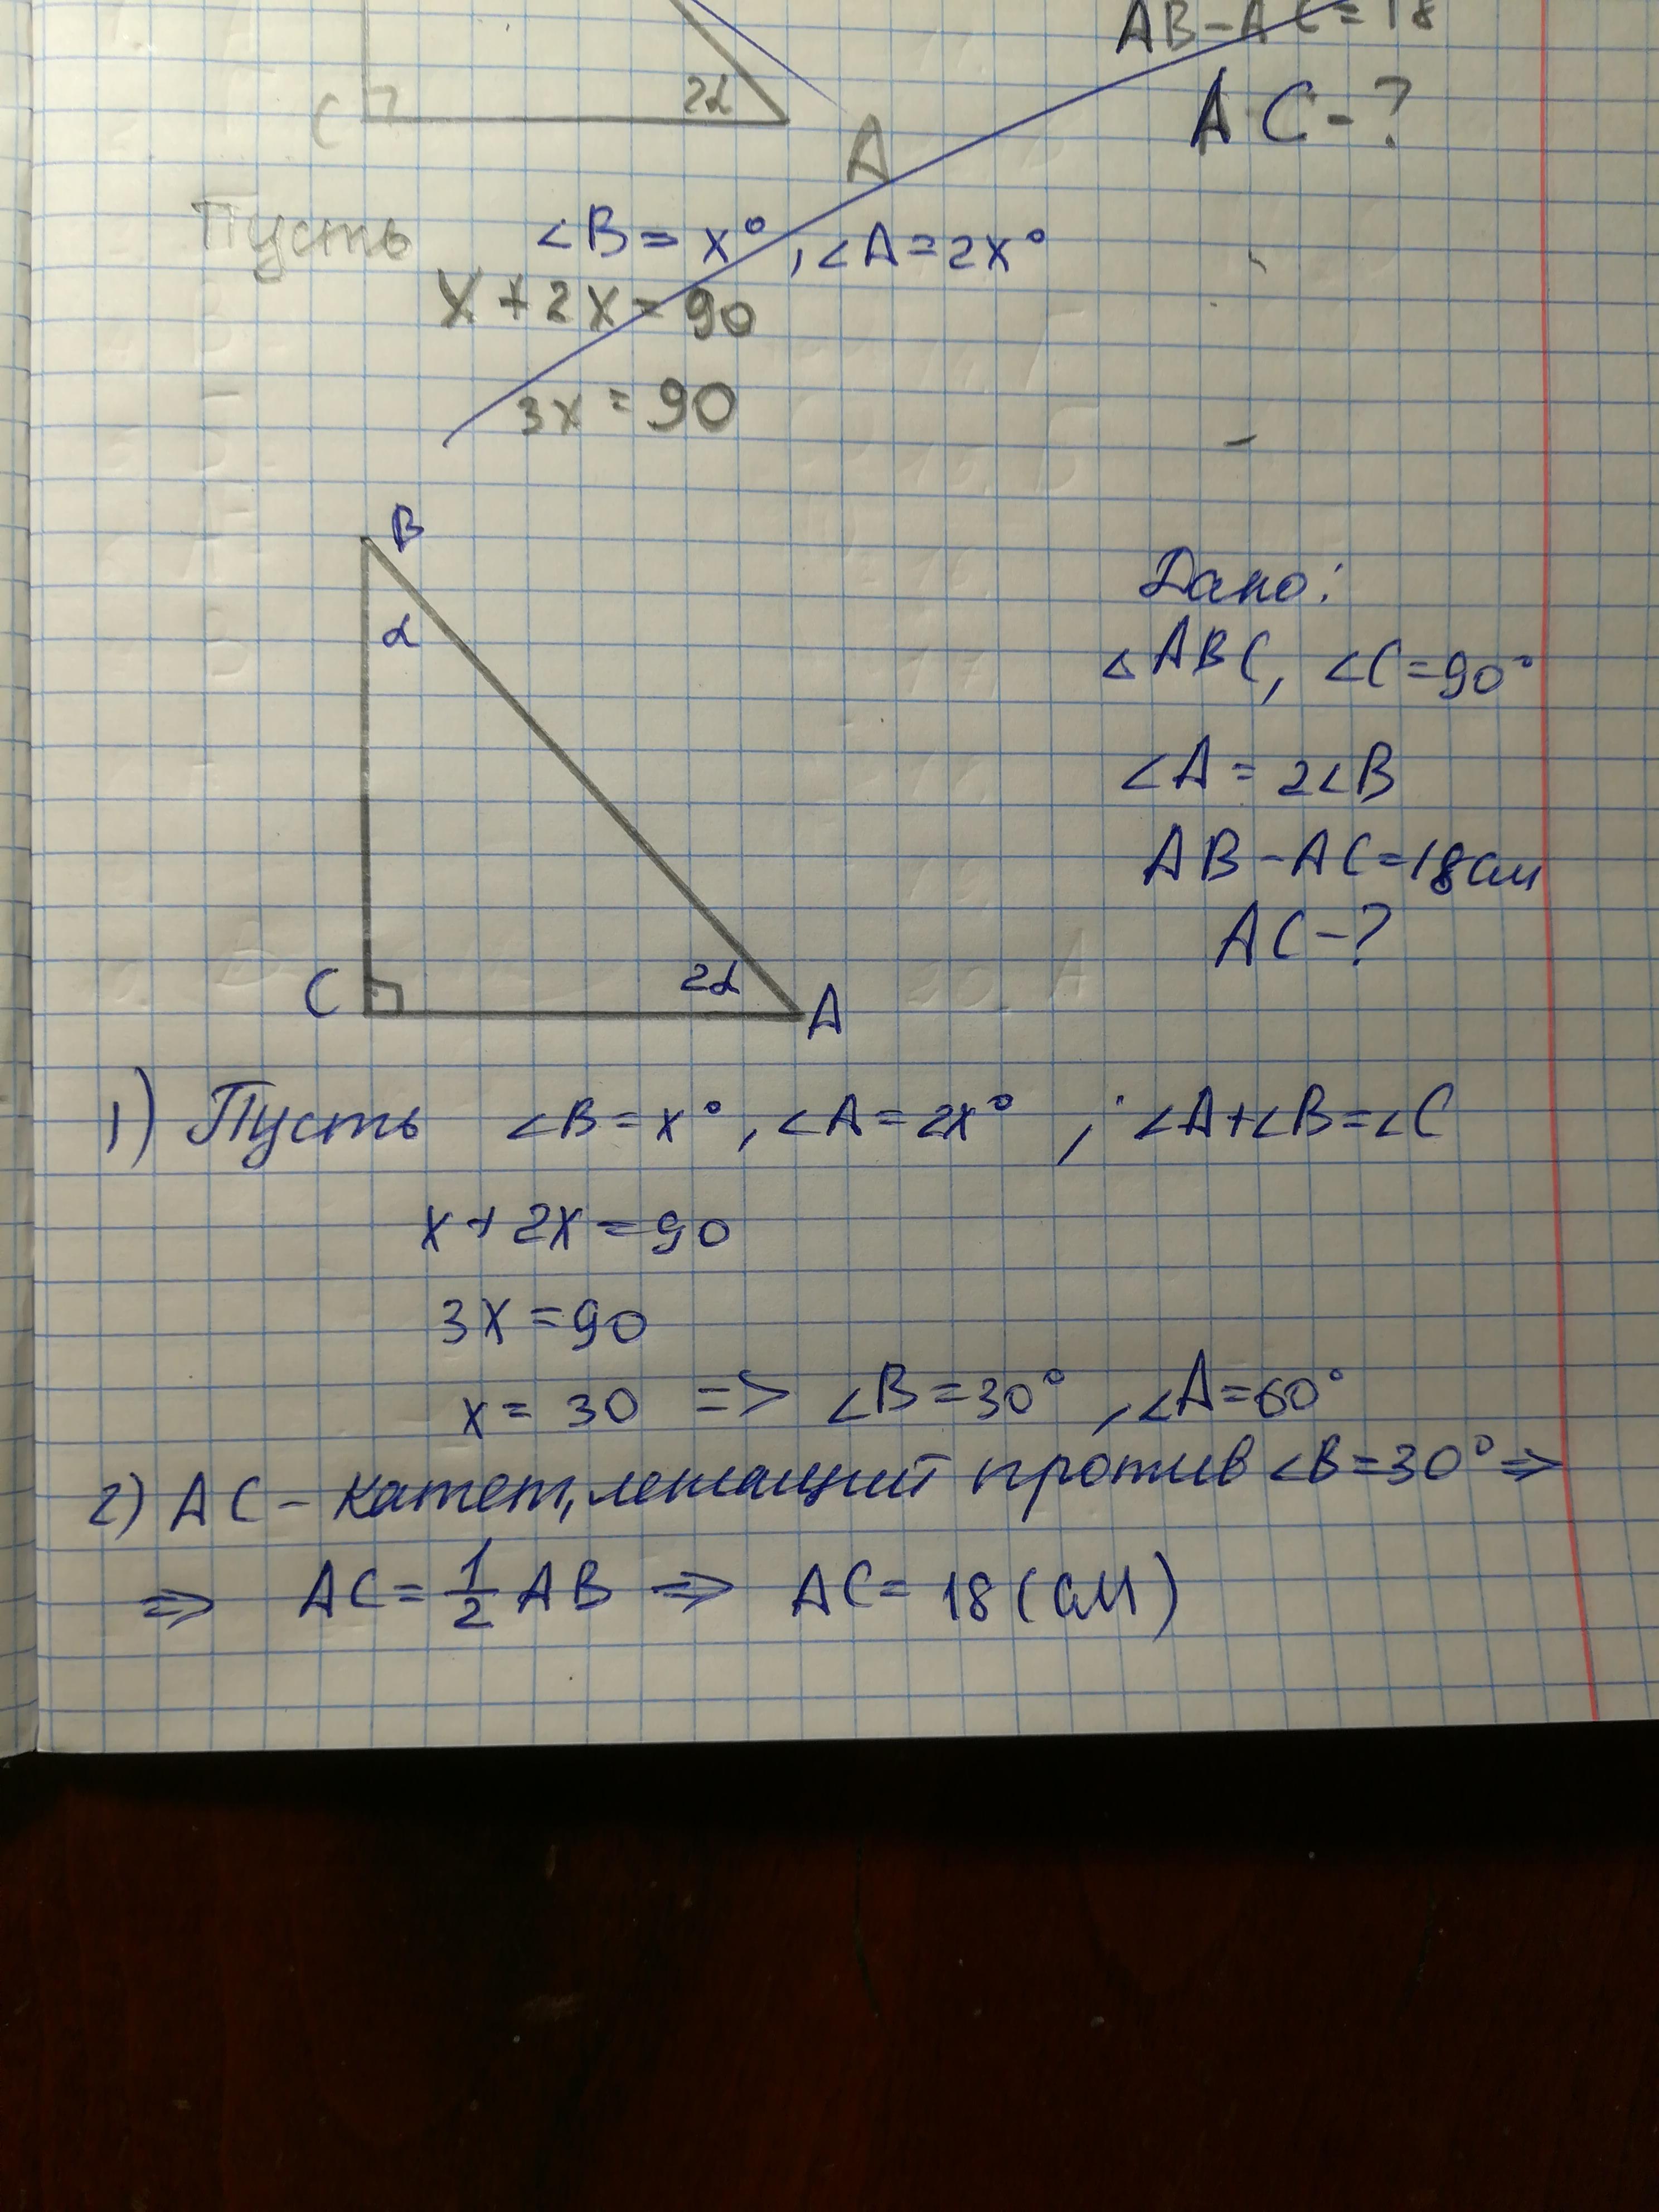 AB-AC=18
AC-?
C 2α A
Пусть ∠B=x°, ∠A=2x°
x+2x=90
3x=90
B
α
Дано:
△ABC, ∠C=90°
∠A=2∠B
AB-AC=18см
AC-?
C 2α A
1) Пусть ∠B=x°, ∠A=2x°; ∠A+∠B=∠C
x+2x=90
3x=90
x=30 => ∠B=30°, ∠A=60°
2) AC-катет, лежащий против ∠B=30° =>
=> AC=1/2 AB => AC=18(см)